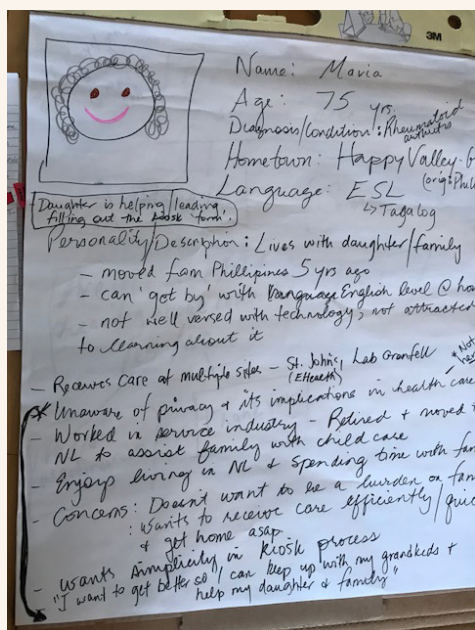 3M
Name: Maria
Age: 75 yrs.
Diagnosis/Condition: Rheumatoid
arthritis
Hometown: Happy Valley-G
Language: ESL (orig: Phil
↳ Tagalog
Daughter is helping/leading
filling out the kiosk 'form'.
Personality/Description: Lives with daughter/family
- moved from Phillipines 5 yrs ago
- can 'get by' with English level @ ho
- not well versed with technology, not attracted
to learning about it
- Receives care at multiple sites - St. John's, Lab Grenfell
(EHealth)
* Not
* Unaware of privacy & its implications in health car
- Worked in service industry - Retired & moved t
NL to assist family with child care
- Enjoys living in NL & spending time with fam
- Concerns: Doesn't want to be a burden on fam
: wants to receive care efficiently/quic
& get home asap
- wants simplicity in kiosk process
- "I want to get better so I can keep up with my grandkids &
help my daughter & family"